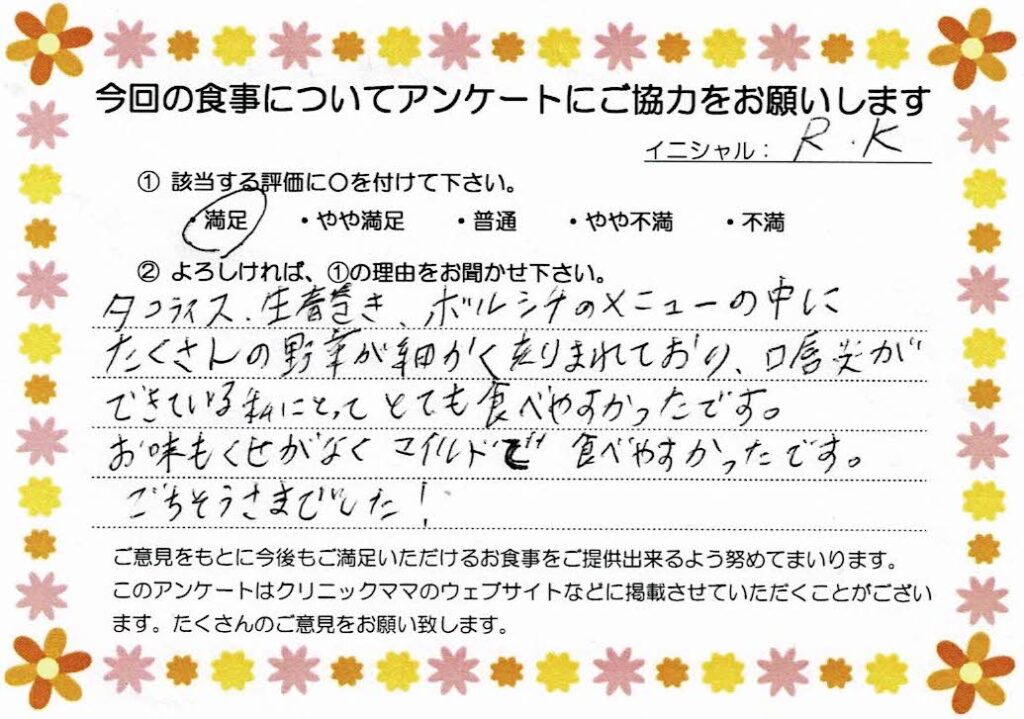 今回の食事についてアンケートにご協力をお願いします
イニシャル： R.K
① 該当する評価に〇を付けて下さい。
・満足 ・やや満足 ・普通 ・やや不満 ・不満
② よろしければ、①の理由をお聞かせ下さい。
タコライス、生春巻き、ボルシチのメニューの中に
たくさんの野菜が細かく入りまれており、口唇炎が
できている私にとってとても食べやすかったです。
お味もくせがなくマイルドで食べやすかったです。
ごちそうさまでした！
ご意見をもとに今後もご満足いただけるお食事をご提供出来るよう努めてまいります。
このアンケートはクリニックママのウェブサイトなどに掲載させていただくことがござい
ます。たくさんのご意見をお願い致します。